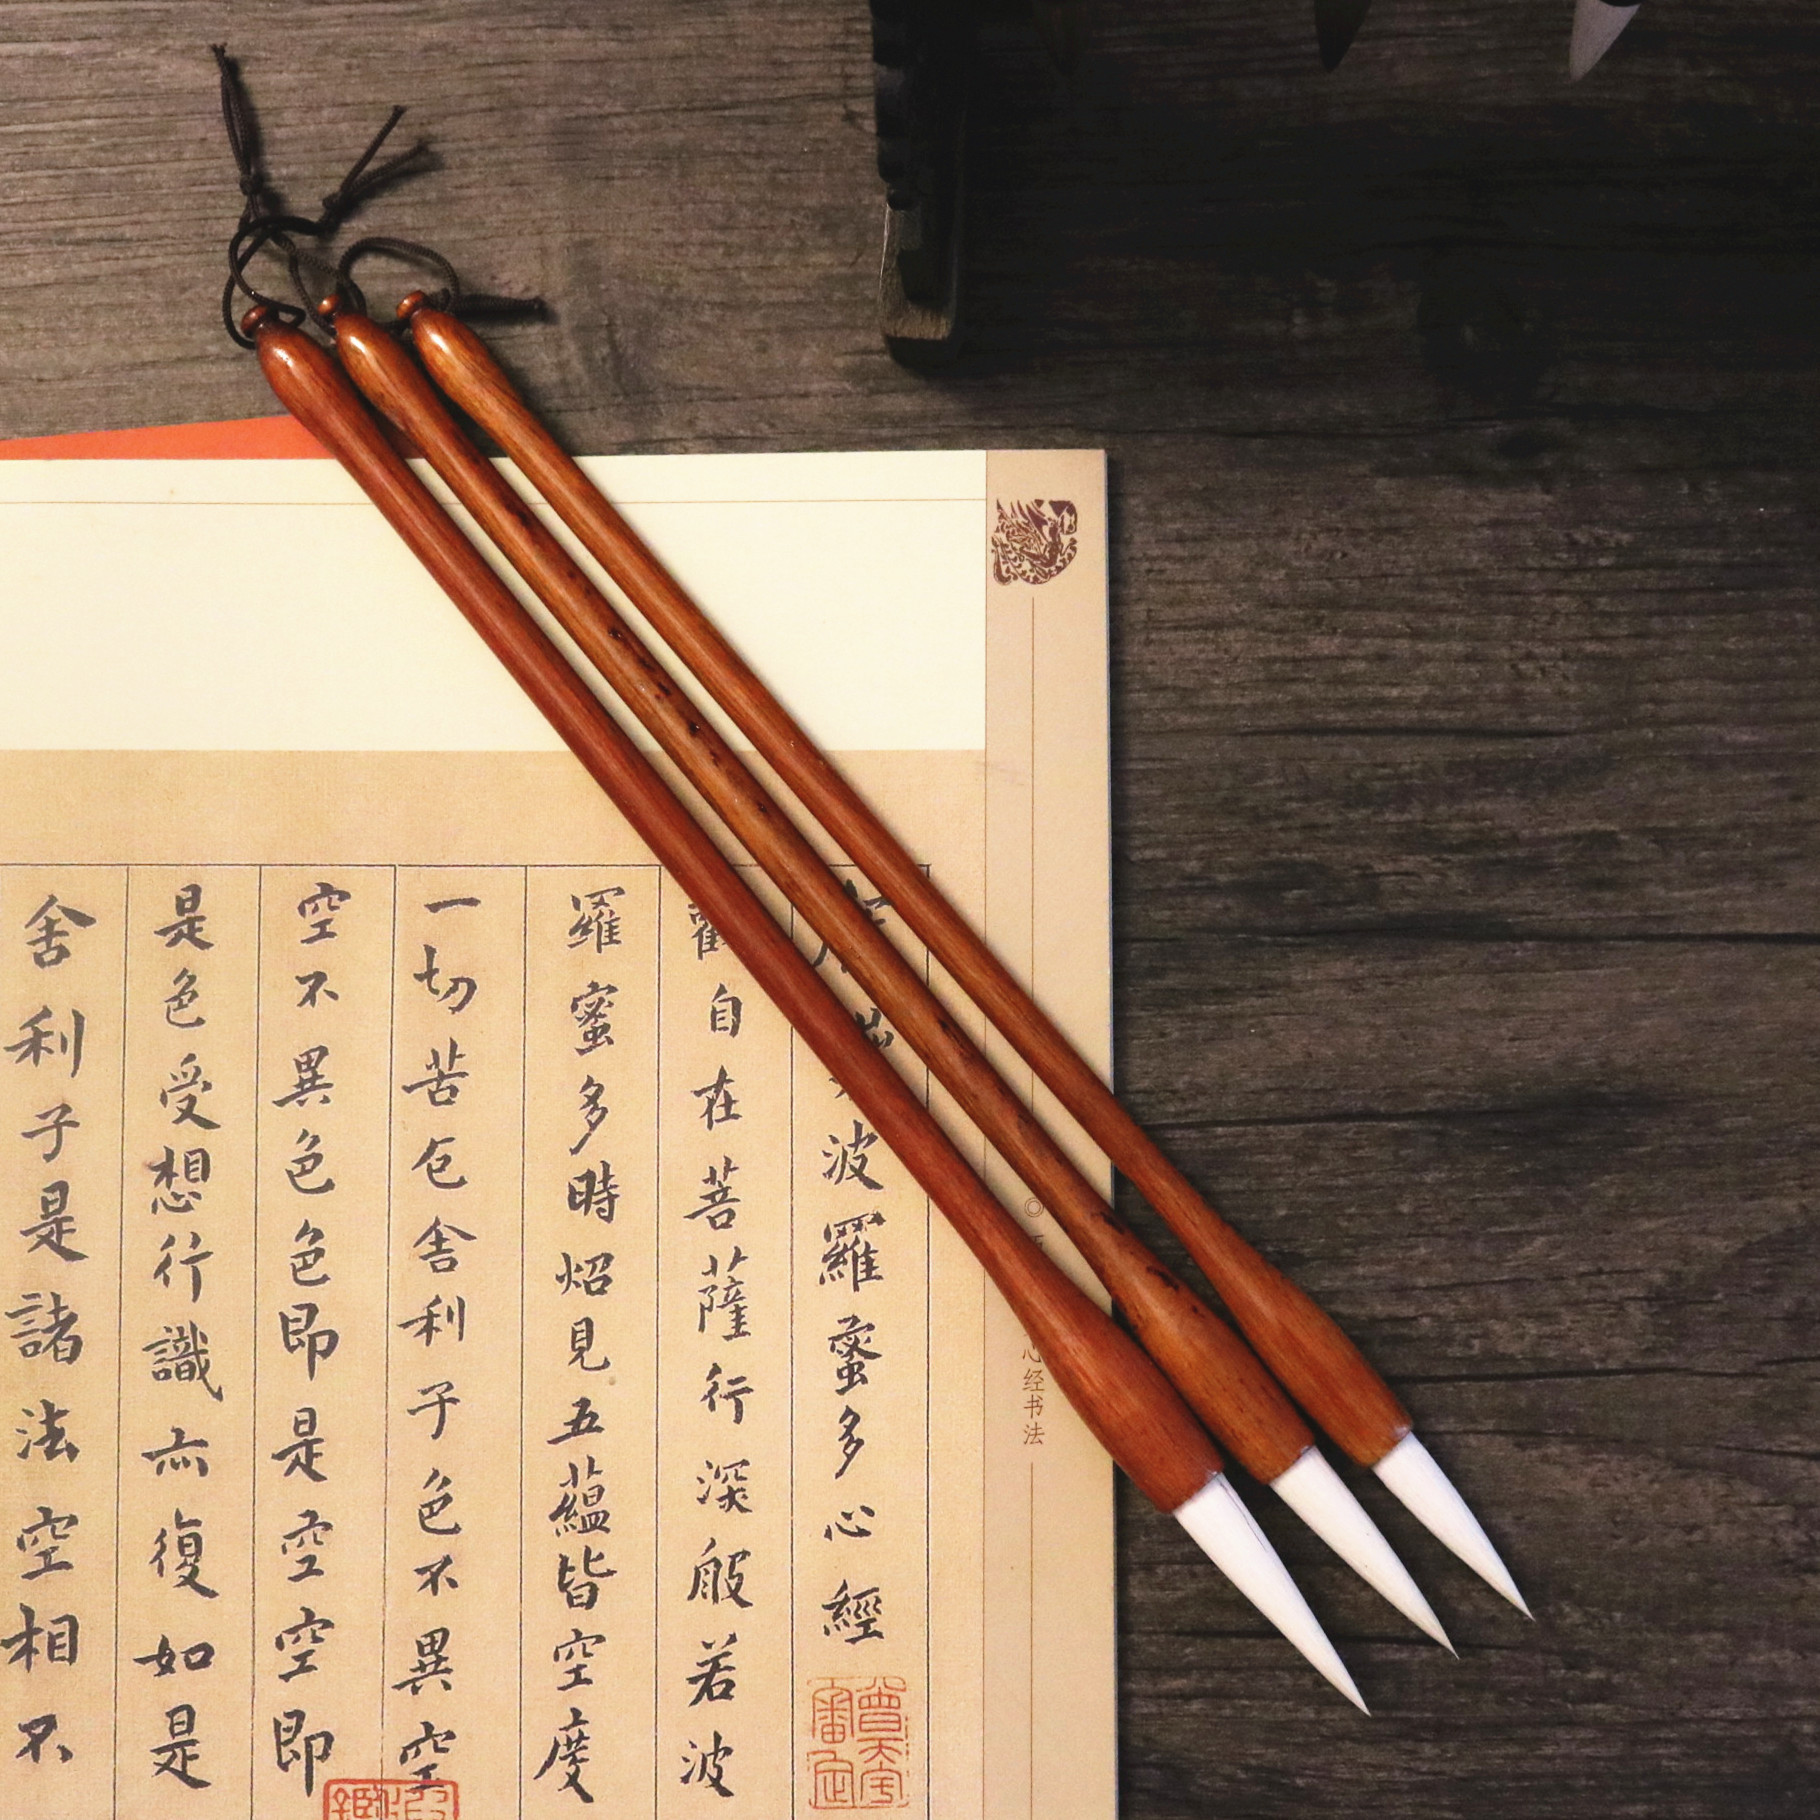 波羅蜜多心經
自在菩薩行深般若波
羅蜜多時炤見五蘊皆空度
一切苦厄舍利子色不異空
空不異色色即是空空即
是色受想行識亦復如是
舍利子是諸法空相不
心经书法